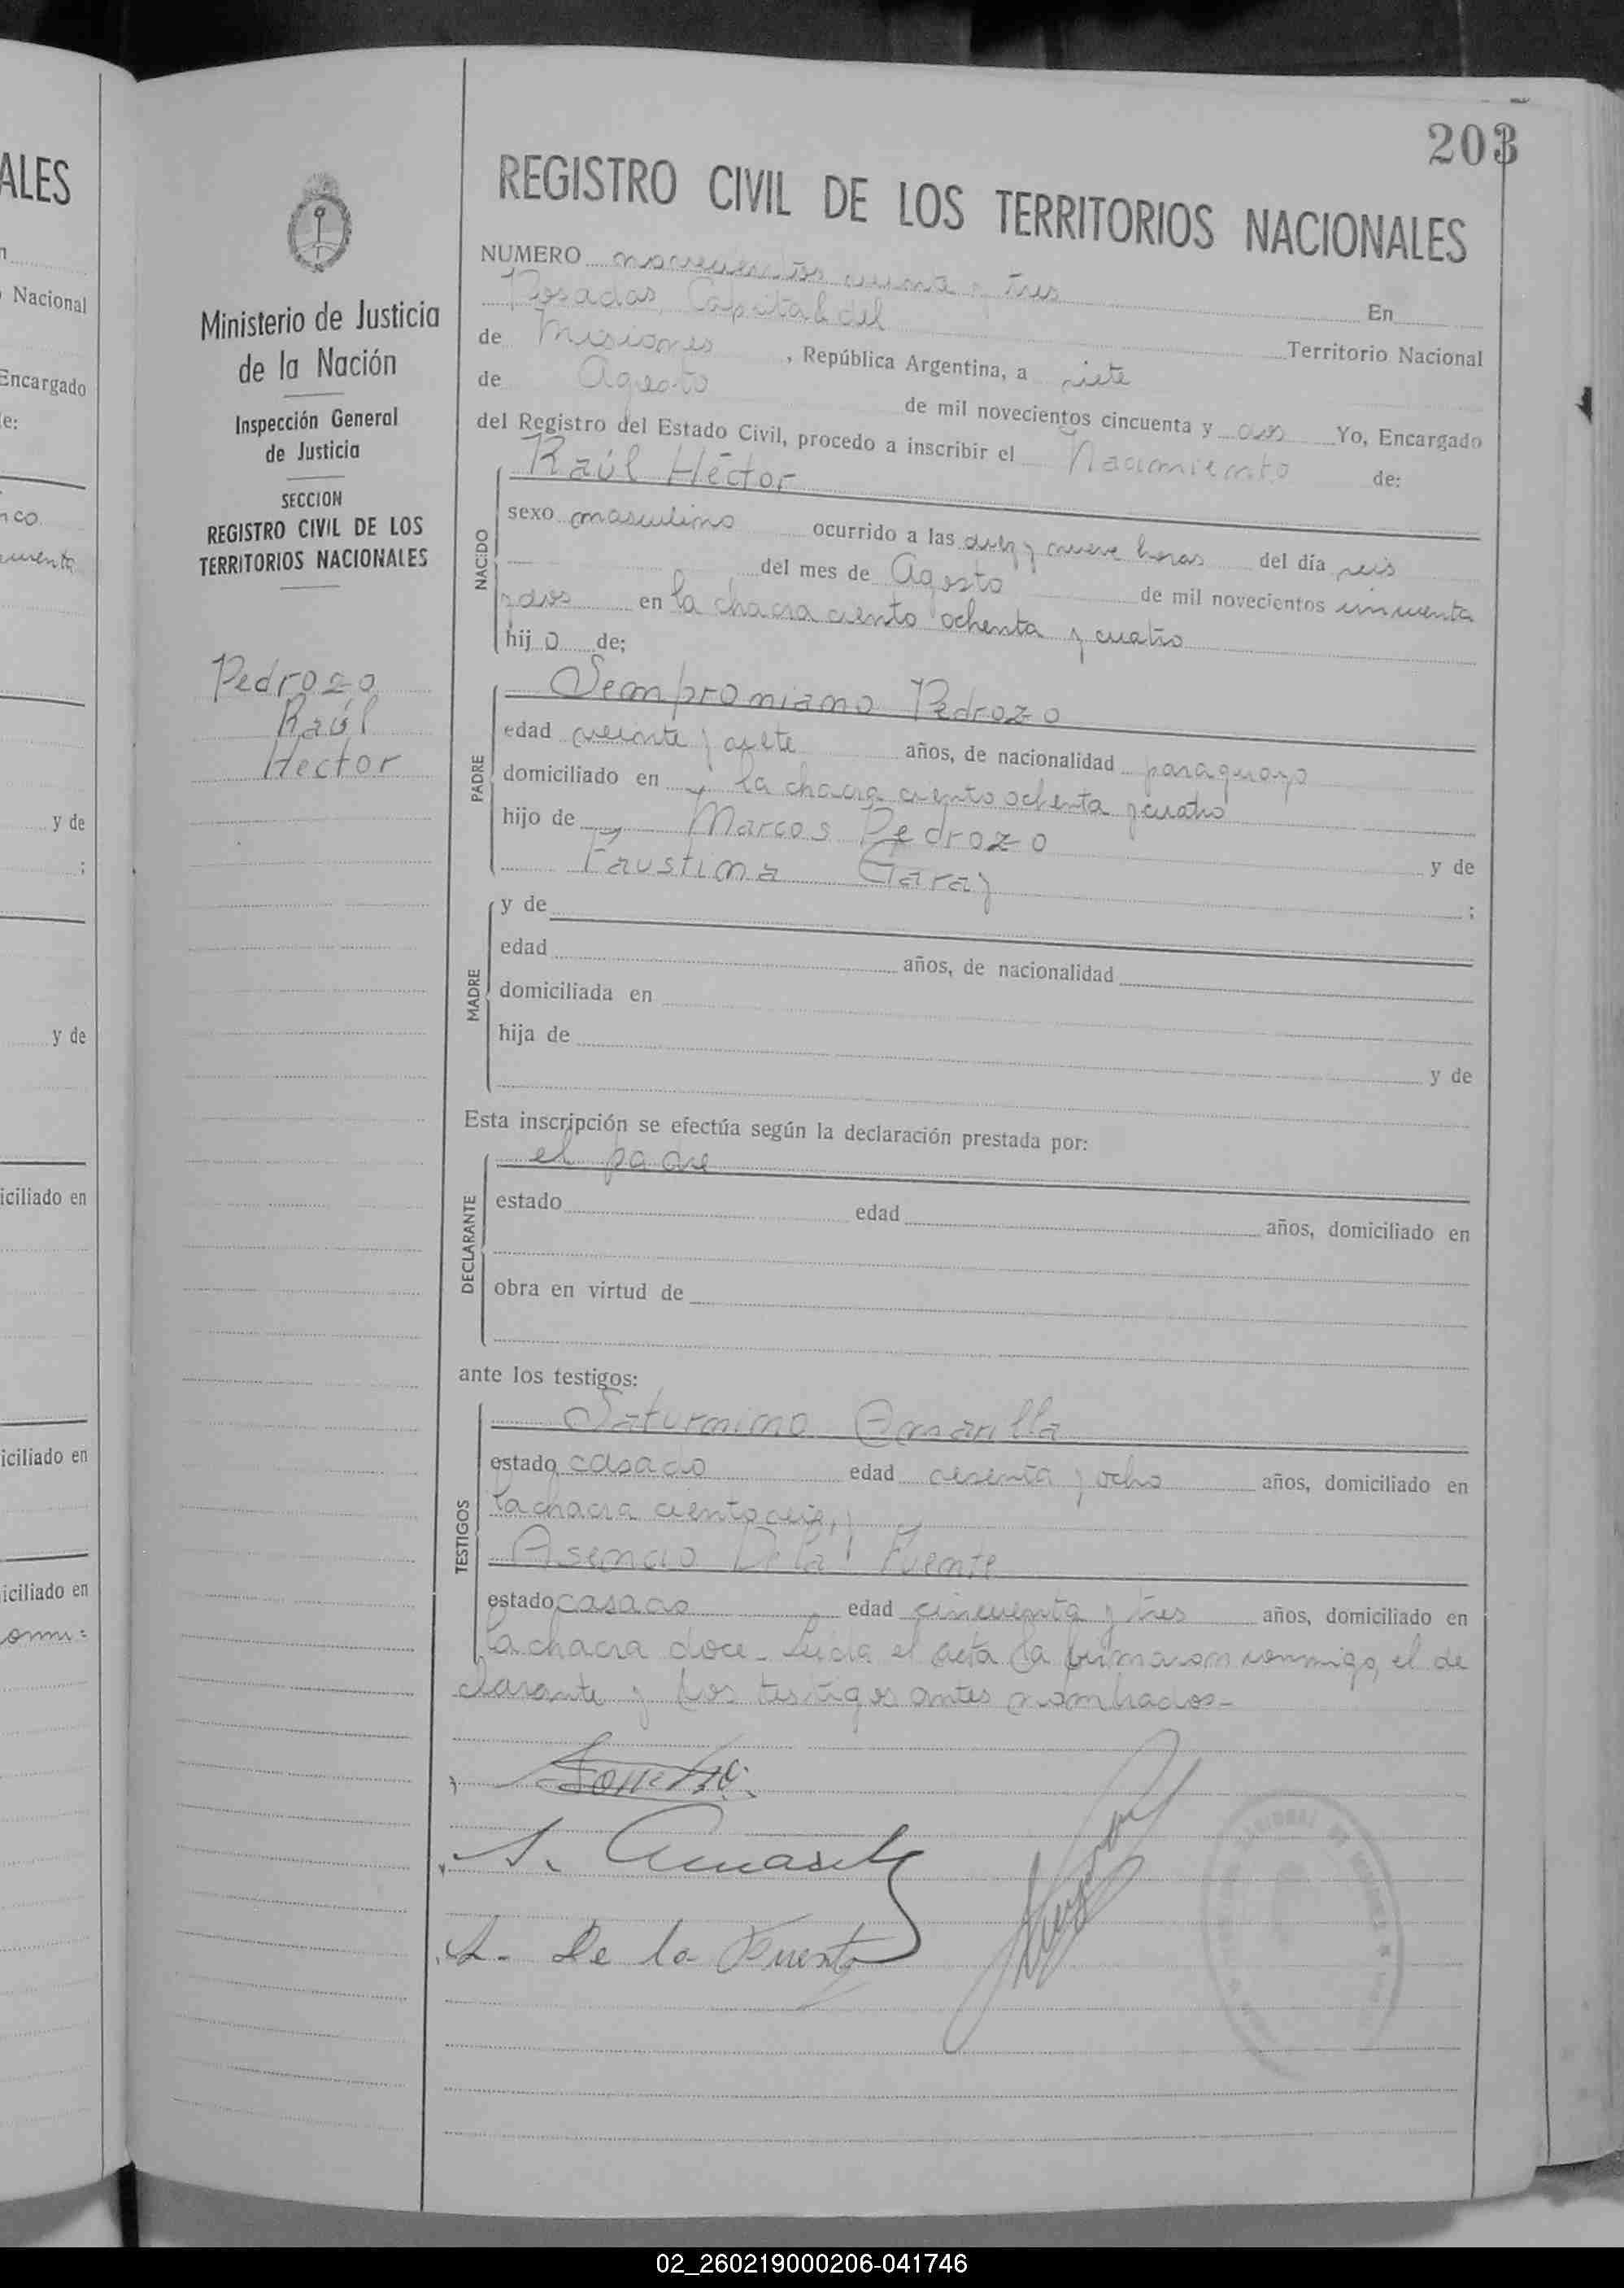 203
REGISTRO CIVIL DE LOS TERRITORIOS NACIONALES
NUMERO novecientos y tres
Posadas, Capital del En
de Misiones Territorio Nacional
, República Argentina, a siete
de Agosto de mil novecientos cincuenta y dos Yo, Encargado
del Registro del Estado Civil, procedo a inscribir el Nacimiento de:
Raúl Héctor
NACIDO
sexo masculino ocurrido a las diez y nueve horas del día seis
del mes de Agosto de mil novecientos cincuenta
y dos en la chacra ciento ochenta y cuatro
hij o de;
PADRE
Semproniano Pedrozo
edad veinte y siete años, de nacionalidad paraguayo
domiciliado en la chacra ciento ochenta y cuatro
hijo de Marcos Pedrozo y de
Faustina Garay ;
MADRE
y de
edad años, de nacionalidad
domiciliada en
hija de
y de
Esta inscripción se efectúa según la declaración prestada por:
DECLARANTE
el padre
estado edad años, domiciliado en
obra en virtud de
ante los testigos:
TESTIGOS
Saturnino Amarilla
estado casado edad sesenta y ocho años, domiciliado en
la chacra ciento seis, y
Asencio De la Fuente
estado casado edad cincuenta y tres años, domiciliado en
la chacra doce - Leída el acta la firmaron conmigo, el de
clarante y los testigos antes nombrados -
S. Amarilla
A. De la Fuente
Ministerio de Justicia
de la Nación
Inspección General
de Justicia
SECCION
REGISTRO CIVIL DE LOS
TERRITORIOS NACIONALES
Pedrozo
Raúl
Hector
ALES
Nacional
Encargado
y de
;
y de
iciliado en
iciliado en
iciliado en
02_260219000206-041746